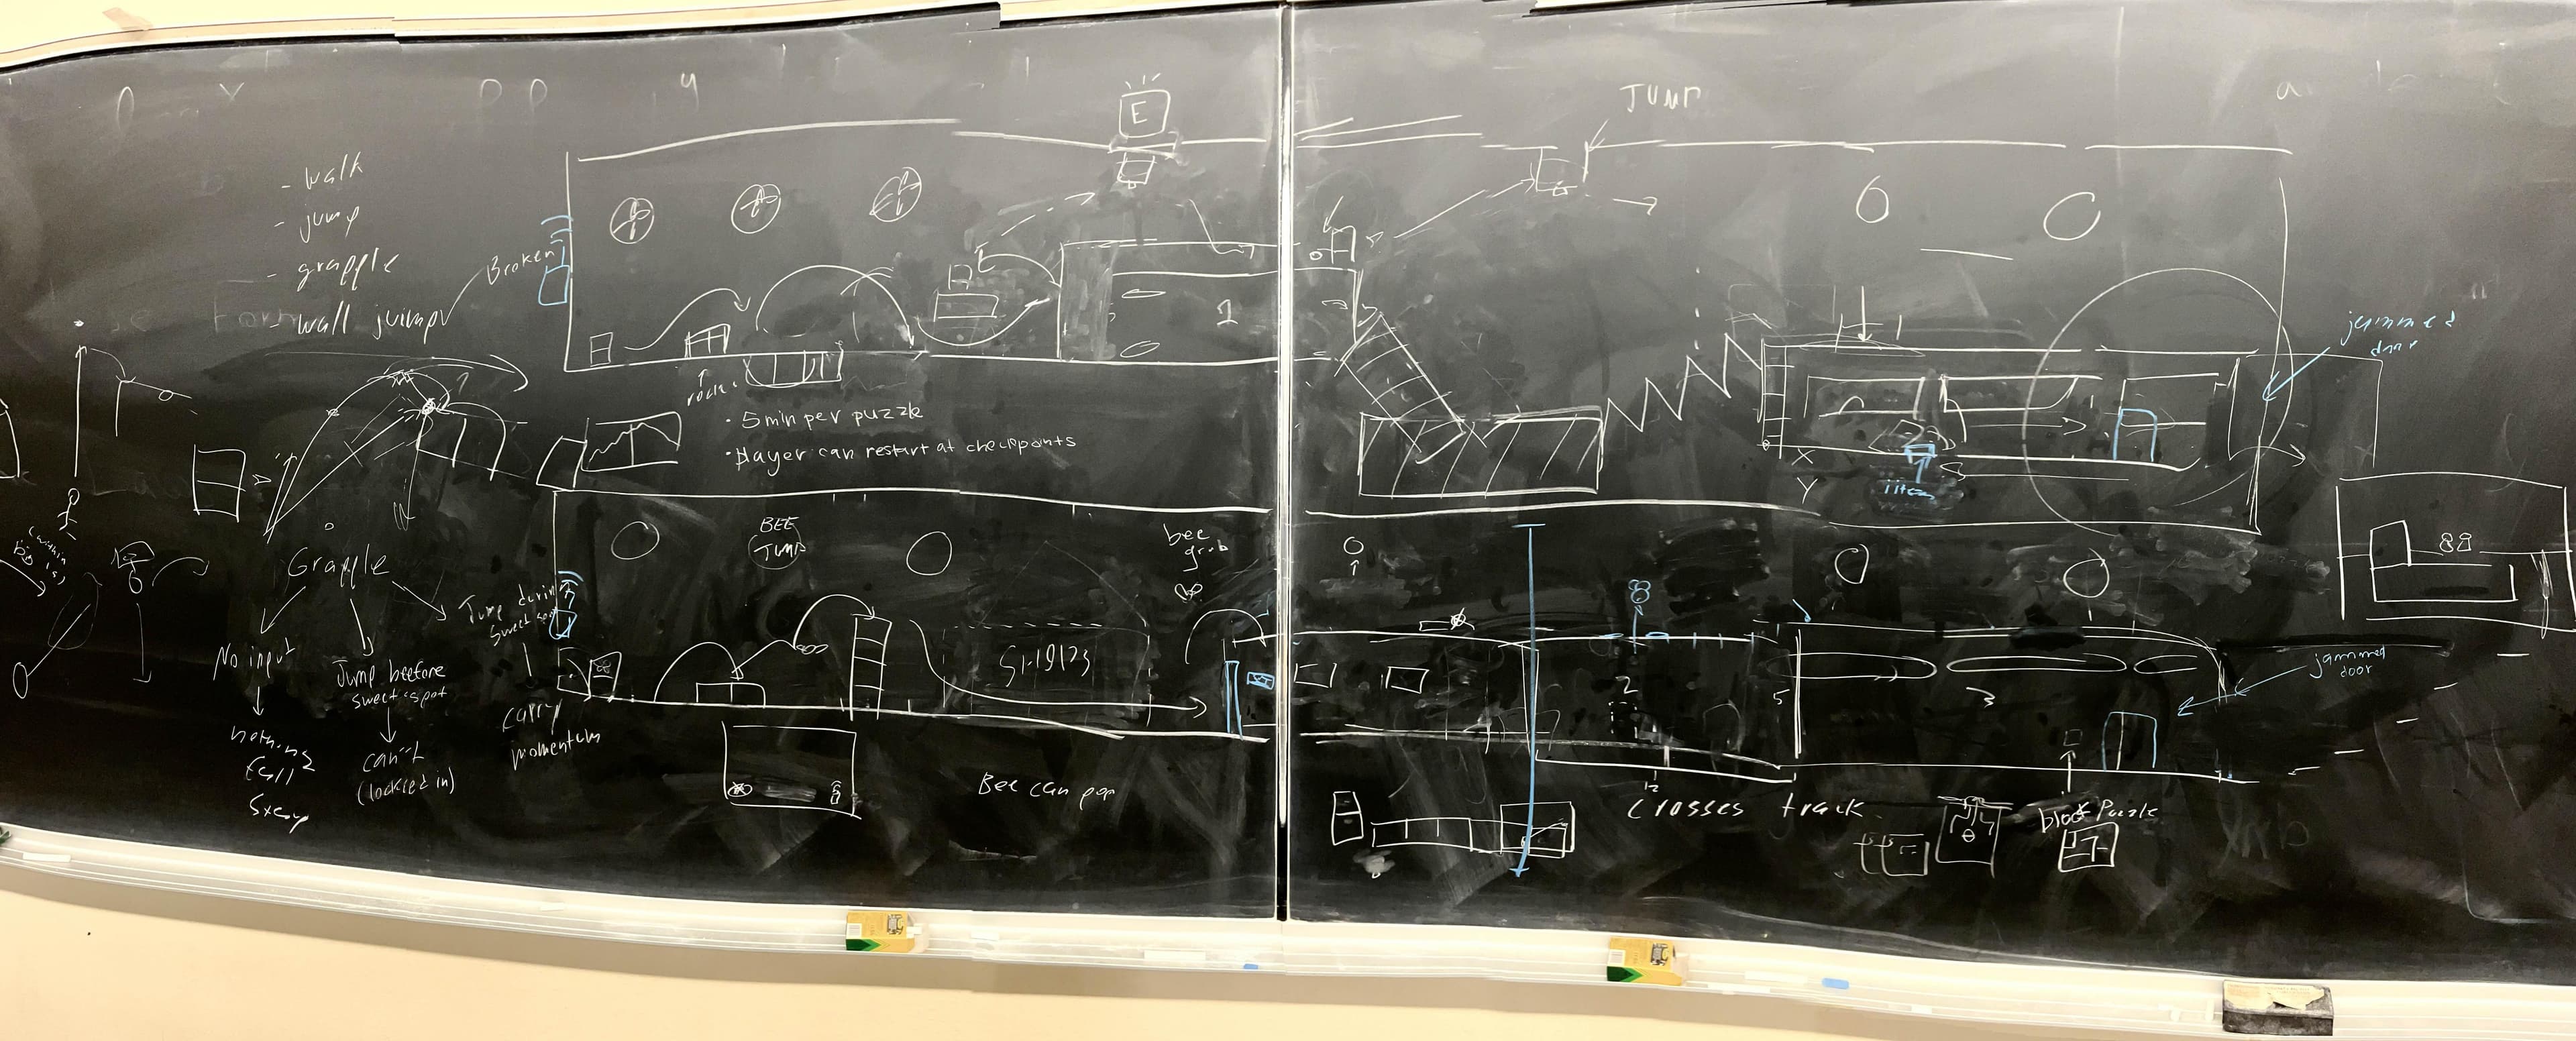 E
JUMP
- walk
- jump
- grapple
- wall jump
Broken
jammed
door
1
rock
• 5 min per puzzle
• Player can restart at checkpoints
X
Y
item
BEE
JUMP
bee
grab
Grapple
No input
Jump beetore
sweet spot
Jump during
sweet spot
nothing
can't
(locked in)
carry
momentum
2
5
3
jammed
door
Bee can pop
Crosses track
block Puzzle